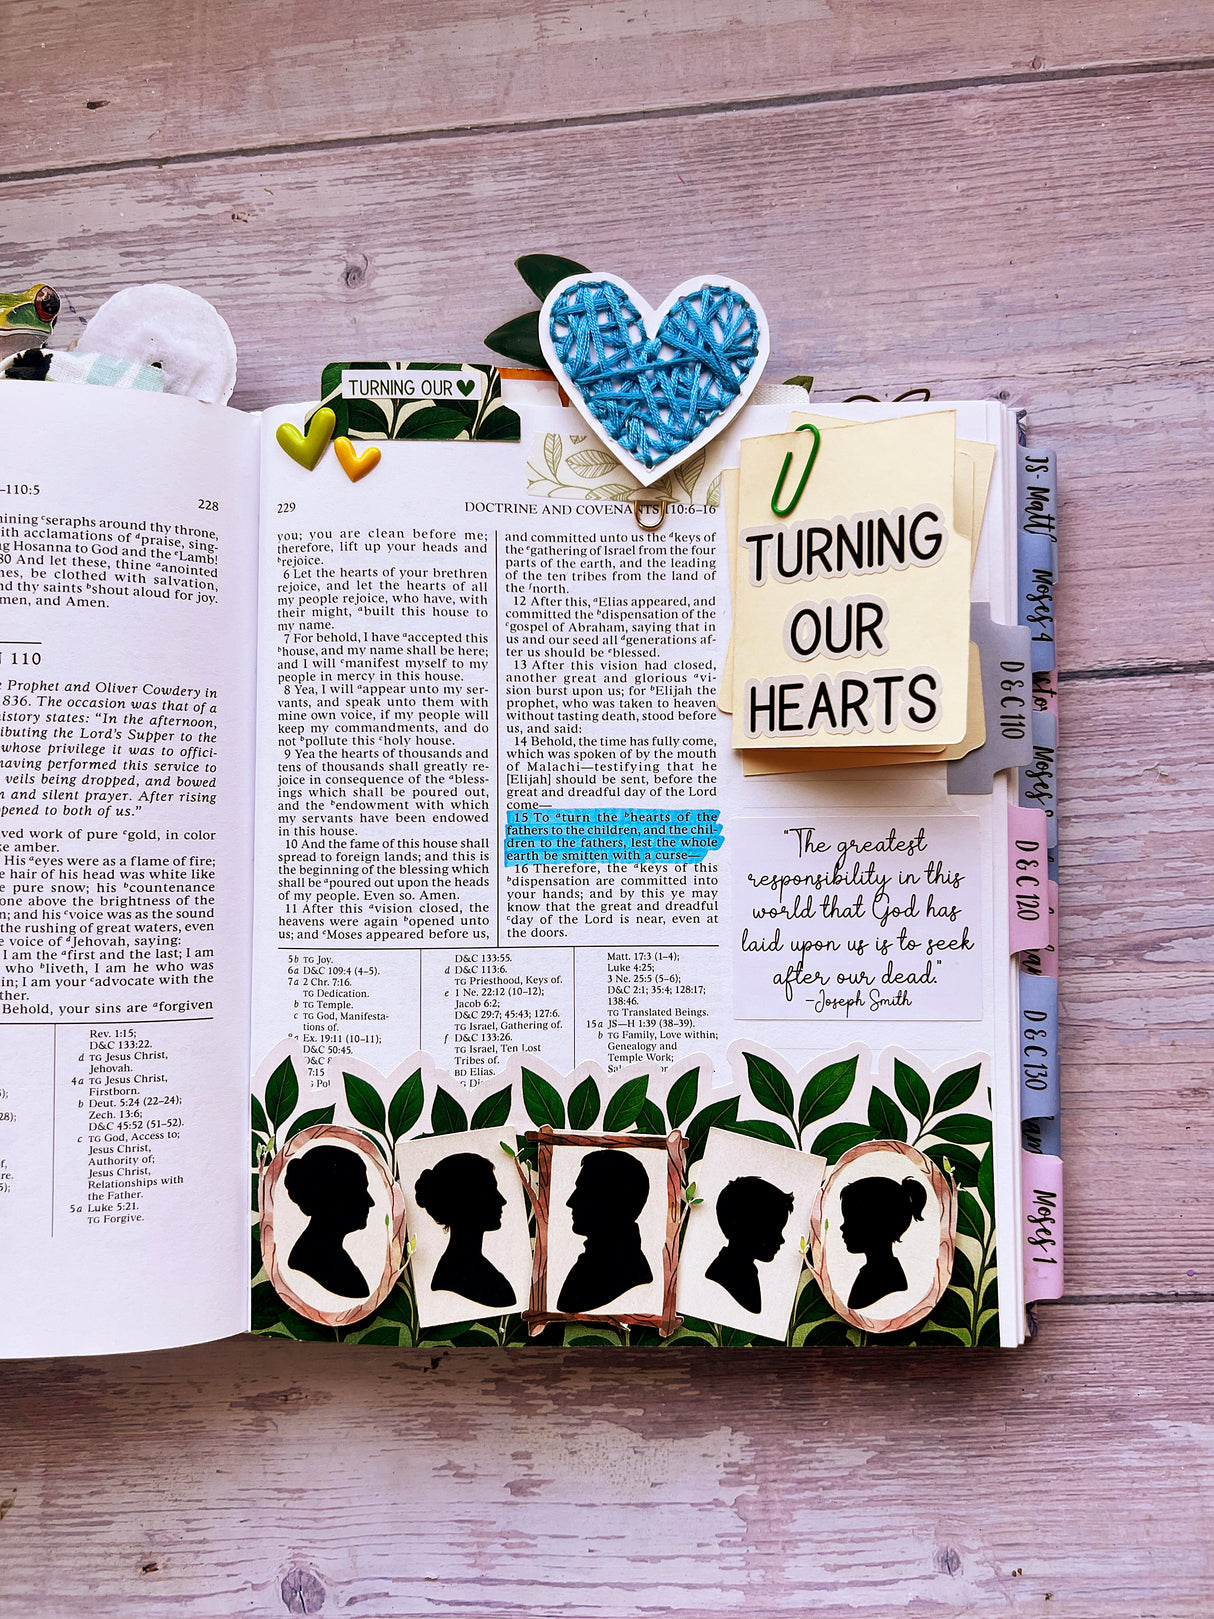 –110:5
228
ining ᶜseraphs around thy throne,
ith acclamations of ᵈpraise, sing-
g Hosanna to God and the ᵉLamb!
80 And let these, thine ᵃanointed
nes, be clothed with salvation,
nd thy saints ᵇshout aloud for joy.
men, and Amen.
110
Prophet and Oliver Cowdery in
836. The occasion was that of a
istory states: “In the afternoon,
ibuting the Lord’s Supper to the
whose privilege it was to offici-
having performed this service to
veils being dropped, and bowed
n and silent prayer. After rising
pened to both of us.”
ved work of pure ᶜgold, in color
ke amber.
His ᵃeyes were as a flame of fire;
e hair of his head was white like
e pure snow; his ᵇcountenance
one above the brightness of the
n; and his ᶜvoice was as the sound
the rushing of great waters, even
e voice of ᵈJehovah, saying:
I am the ᵃfirst and the last; I am
who ᵇliveth, I am he who was
in; I am your ᶜadvocate with the
ther.
Behold, your sins are ᵃforgiven
Rev. 1:15;
D&C 133:22.
d TG Jesus Christ,
Jehovah.
4a TG Jesus Christ,
Firstborn.
b Deut. 5:24 (22–24);
Zech. 13:6;
D&C 45:52 (51–52).
c TG God, Access to;
Jesus Christ,
Authority of;
Jesus Christ,
Relationships with
the Father.
5a Luke 5:21.
TG Forgive.
TURNING OUR
229
DOCTRINE AND COVENANTS 110:6–16
you; you are clean before me;
therefore, lift up your heads and
ᵇrejoice.
6 Let the hearts of your brethren
rejoice, and let the hearts of all
my people rejoice, who have, with
their might, ᵃbuilt this house to
my name.
7 For behold, I have ᵃaccepted this
ᵇhouse, and my name shall be here;
and I will ᶜmanifest myself to my
people in mercy in this house.
8 Yea, I will ᵃappear unto my ser-
vants, and speak unto them with
mine own voice, if my people will
keep my commandments, and do
not ᵇpollute this ᶜholy house.
9 Yea the hearts of thousands and
tens of thousands shall greatly re-
joice in consequence of the ᵃbless-
ings which shall be poured out,
and the ᵇendowment with which
my servants have been endowed
in this house.
10 And the fame of this house shall
spread to foreign lands; and this is
the beginning of the blessing which
shall be ᵃpoured out upon the heads
of my people. Even so. Amen.
11 After this ᵃvision closed, the
heavens were again ᵇopened unto
us; and ᶜMoses appeared before us,
and committed unto us the ᵈkeys of
the ᵉgathering of Israel from the four
parts of the earth, and the leading
of the ten tribes from the land of
the ᶠnorth.
12 After this, ᵃElias appeared, and
committed the ᵇdispensation of the
ᶜgospel of Abraham, saying that in
us and our seed all ᵈgenerations af-
ter us should be ᵉblessed.
13 After this vision had closed,
another great and glorious ᵃvi-
sion burst upon us; for ᵇElijah the
prophet, who was taken to heaven
without tasting death, stood before
us, and said:
14 Behold, the time has fully come,
which was spoken of by the mouth
of Malachi—testifying that he
[Elijah] should be sent, before the
great and dreadful day of the Lord
come—
15 To ᵃturn the ᵇhearts of the
fathers to the children, and the chil-
dren to the fathers, lest the whole
earth be smitten with a curse—
16 Therefore, the ᵃkeys of this
ᵇdispensation are committed into
your hands; and by this ye may
know that the great and dreadful
ᶜday of the Lord is near, even at
the doors.
5b TG Joy.
6a D&C 109:4 (4–5).
7a 2 Chr. 7:16.
TG Dedication.
b TG Temple.
c TG God, Manifesta-
tions of.
8a Ex. 19:11 (10–11);
D&C 50:45.
D&C
7:15
D&C 133:55.
d D&C 113:6.
TG Priesthood, Keys of.
e 1 Ne. 22:12 (10–12);
Jacob 6:2;
D&C 29:7; 45:43; 127:6.
TG Israel, Gathering of.
f D&C 133:26.
TG Israel, Ten Lost
Tribes of.
BD Elias.
Matt. 17:3 (1–4);
Luke 4:25;
3 Ne. 25:5 (5–6);
D&C 2:1; 35:4; 128:17;
138:46.
TG Translated Beings.
15a JS—H 1:39 (38–39).
b TG Family, Love within;
Genealogy and
Temple Work;
TURNING
OUR
HEARTS
“The greatest
responsibility in this
world that God has
laid upon us is to seek
after our dead.”
–Joseph Smith
JS- Matt
Moses 4
D&C 110
Moses
D&C 120
D&C 130
Moses 1